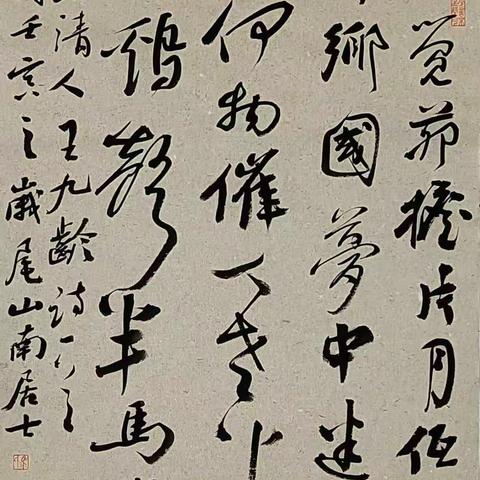 覺茆檐片月低
鄉國夢中迷
何物催人老半
鷄聲半馬
清人王九齡詩一首
壬寅之歲尾山南居士